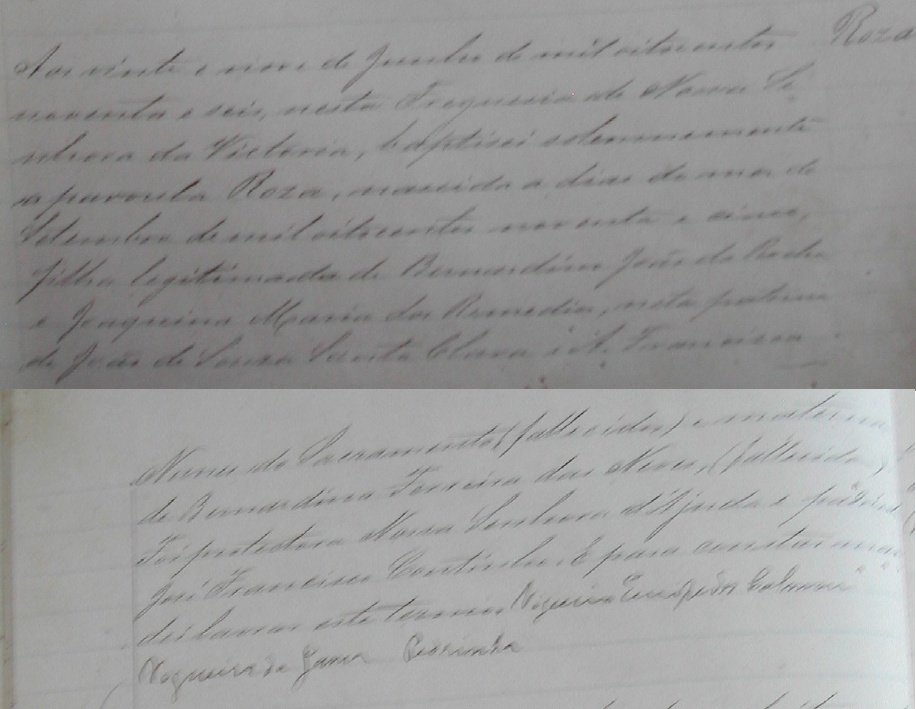 Roza
Aos vinte e nove de Junho de mil oitocentos
noventa e seis, nesta Freguesia de Nossa Se-
nhora da Victoria, baptisei solemnemente
a parvula Roza, nascida a dias do mez de
Setembro de mil oitocentos noventa e cinco,
filha legitimada de Bernardino João da Rocha
e Joaquina Maria dos Remedios, neta paterna
de João de Souza Santa Clara e Francisca
Nunes do Sacramento (fallecidos) e materna
de Bernardina Ferreira das Neves, (fallecida)
Foi protectora Nossa Senhora d'Ajuda e padrinho
José Francisco Coutinho. E para constar man-
dei lavrar este termo. Vigario
Nogueira da Gama